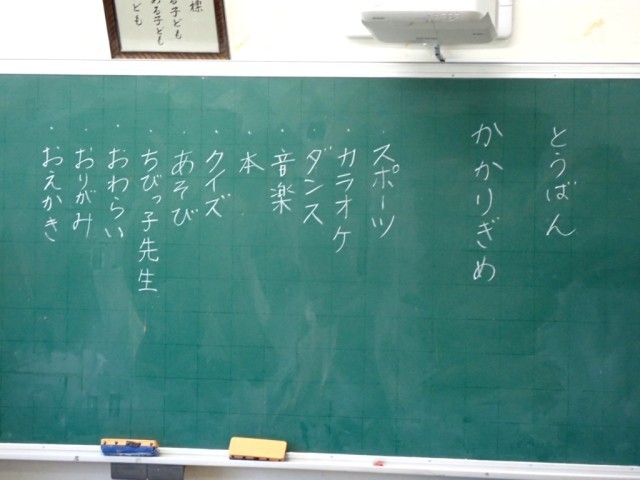 とうばん
かかりぎめ
・スポーツ
・カラオケ
・ダンス
・音楽
・本
・クイズ
・あそび
・ちびっ子先生
・おわらい
・おりがみ
・おえかき
標
る子ども
ある子ども
ども